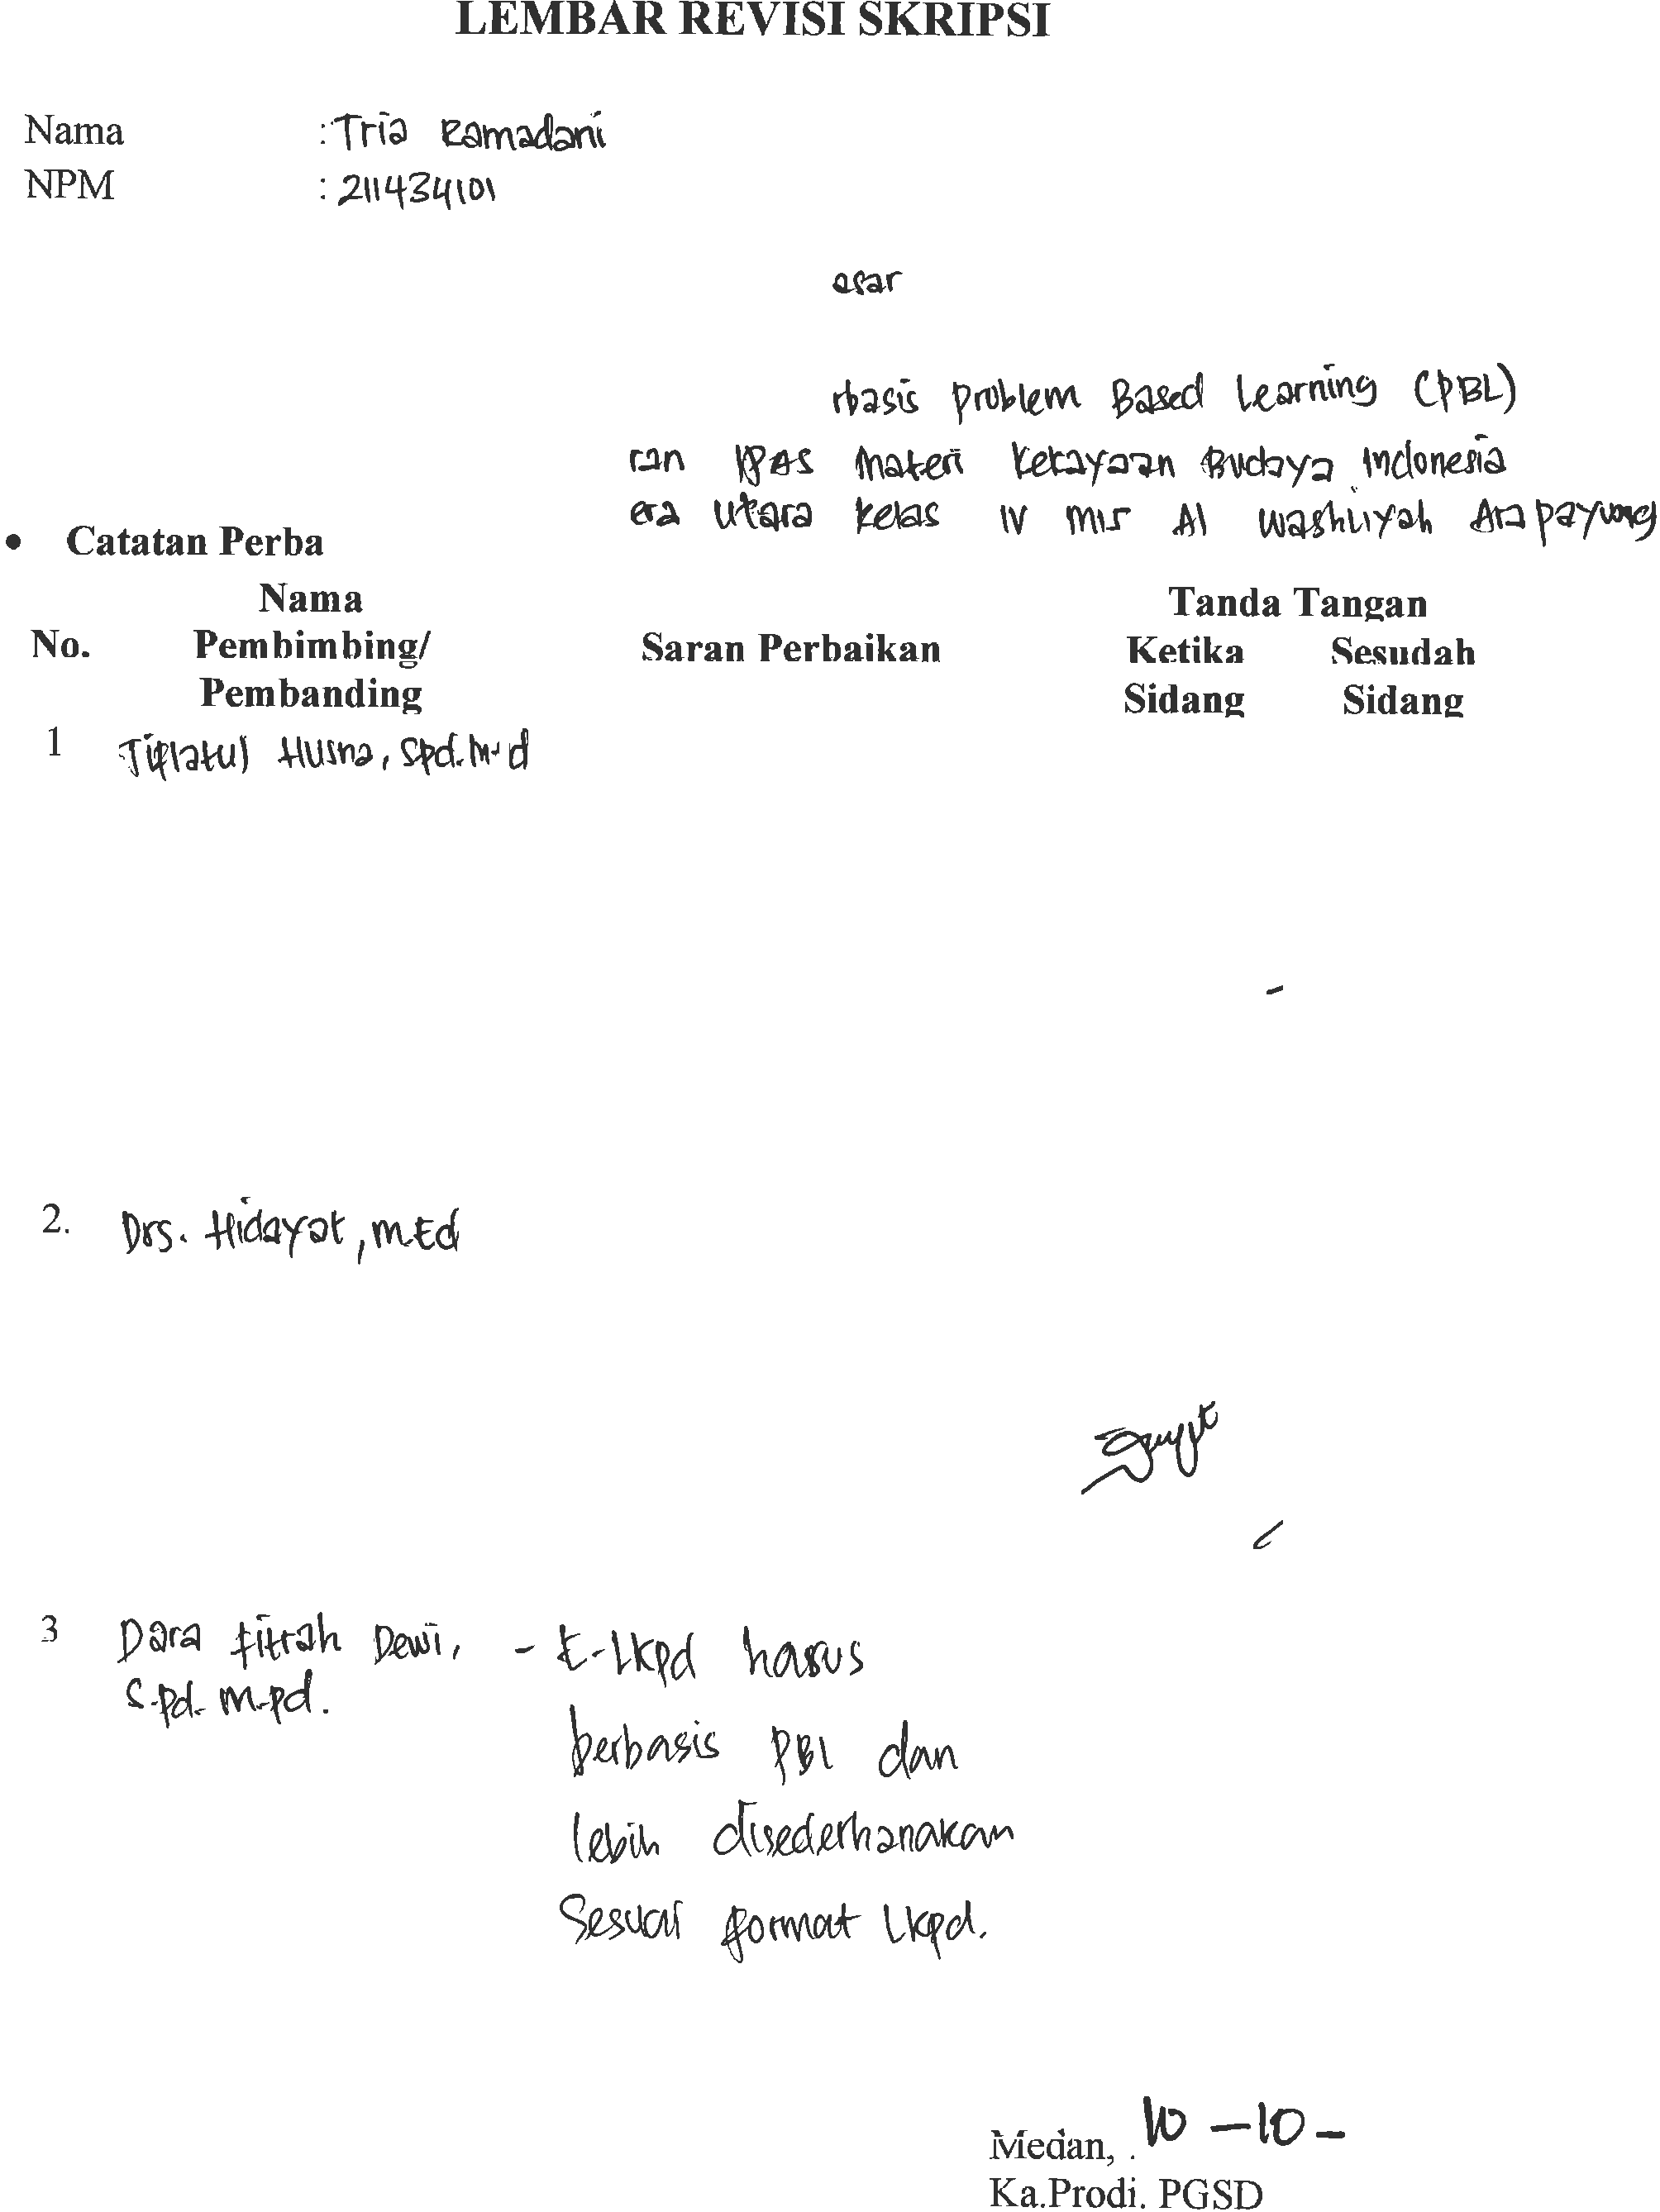 LEMBAR REVISI SKRIPSI
Nama : Tria Ramadani
NPM : 211434101
asar
rbasis Problem Based Learning (PBL)
ran IPAS Materi Kekayaan Budaya Indonesia
era Utara kelas IV MIS Al Washliyah Ara payung
• Catatan Perba
Nama Tanda Tangan
No. Pembimbing/ Saran Perbaikan Ketika Sesudah
Pembanding Sidang Sidang
1 Husna, Spd.
2. Drs. Hidayat, M.Ed
3 Dara Fitrah Dewi, - E-lkpd harus
S.Pd. M.Pd.
berbasis PBL dan
lebih disederhanakan
Sesuai format Lkpd.
Medan, . 10 - 10 -
Ka.Prodi. PGSD